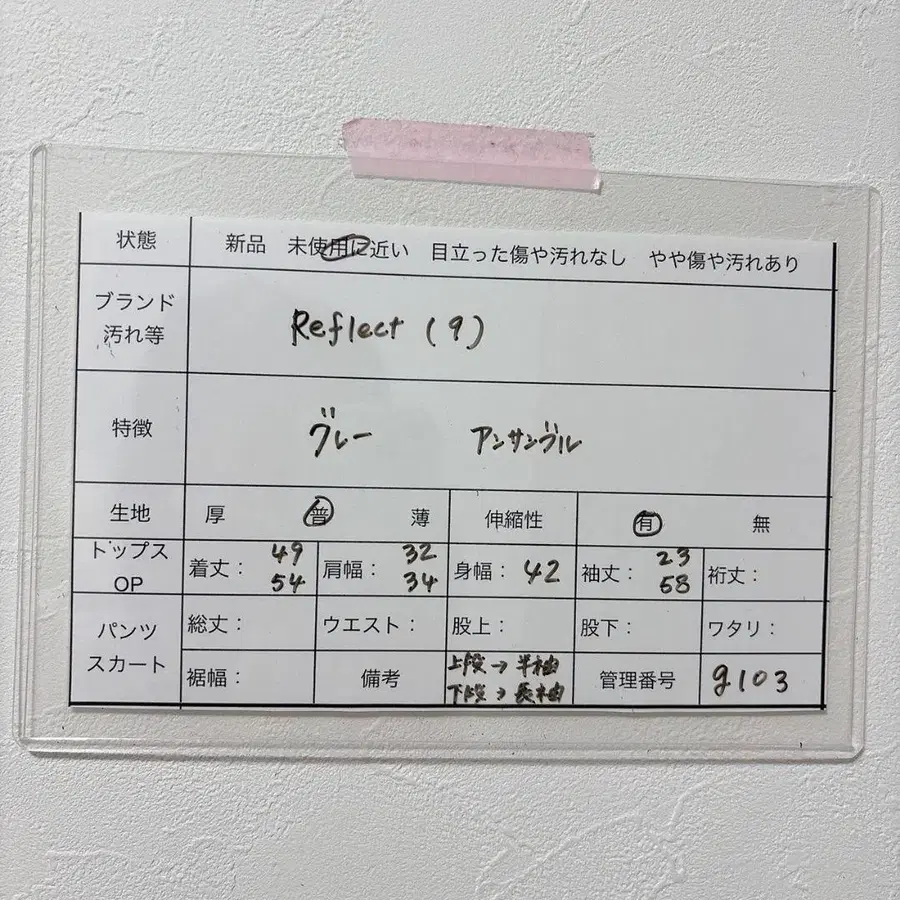 状態 新品 未使用に近い 目立った傷や汚れなし やや傷や汚れあり
ブランド
汚れ等
Reflect (9)
特徴 グレー アンサンブル
生地 厚 普 薄 伸縮性 有 無
トップス
OP
着丈: 49
54
肩幅: 32
34
身幅: 42
袖丈: 23
58
裄丈:
パンツ
スカート
総丈: ウエスト: 股上: 股下: ワタリ:
裾幅: 備考
上段→半袖
下段→長袖
管理番号 g103